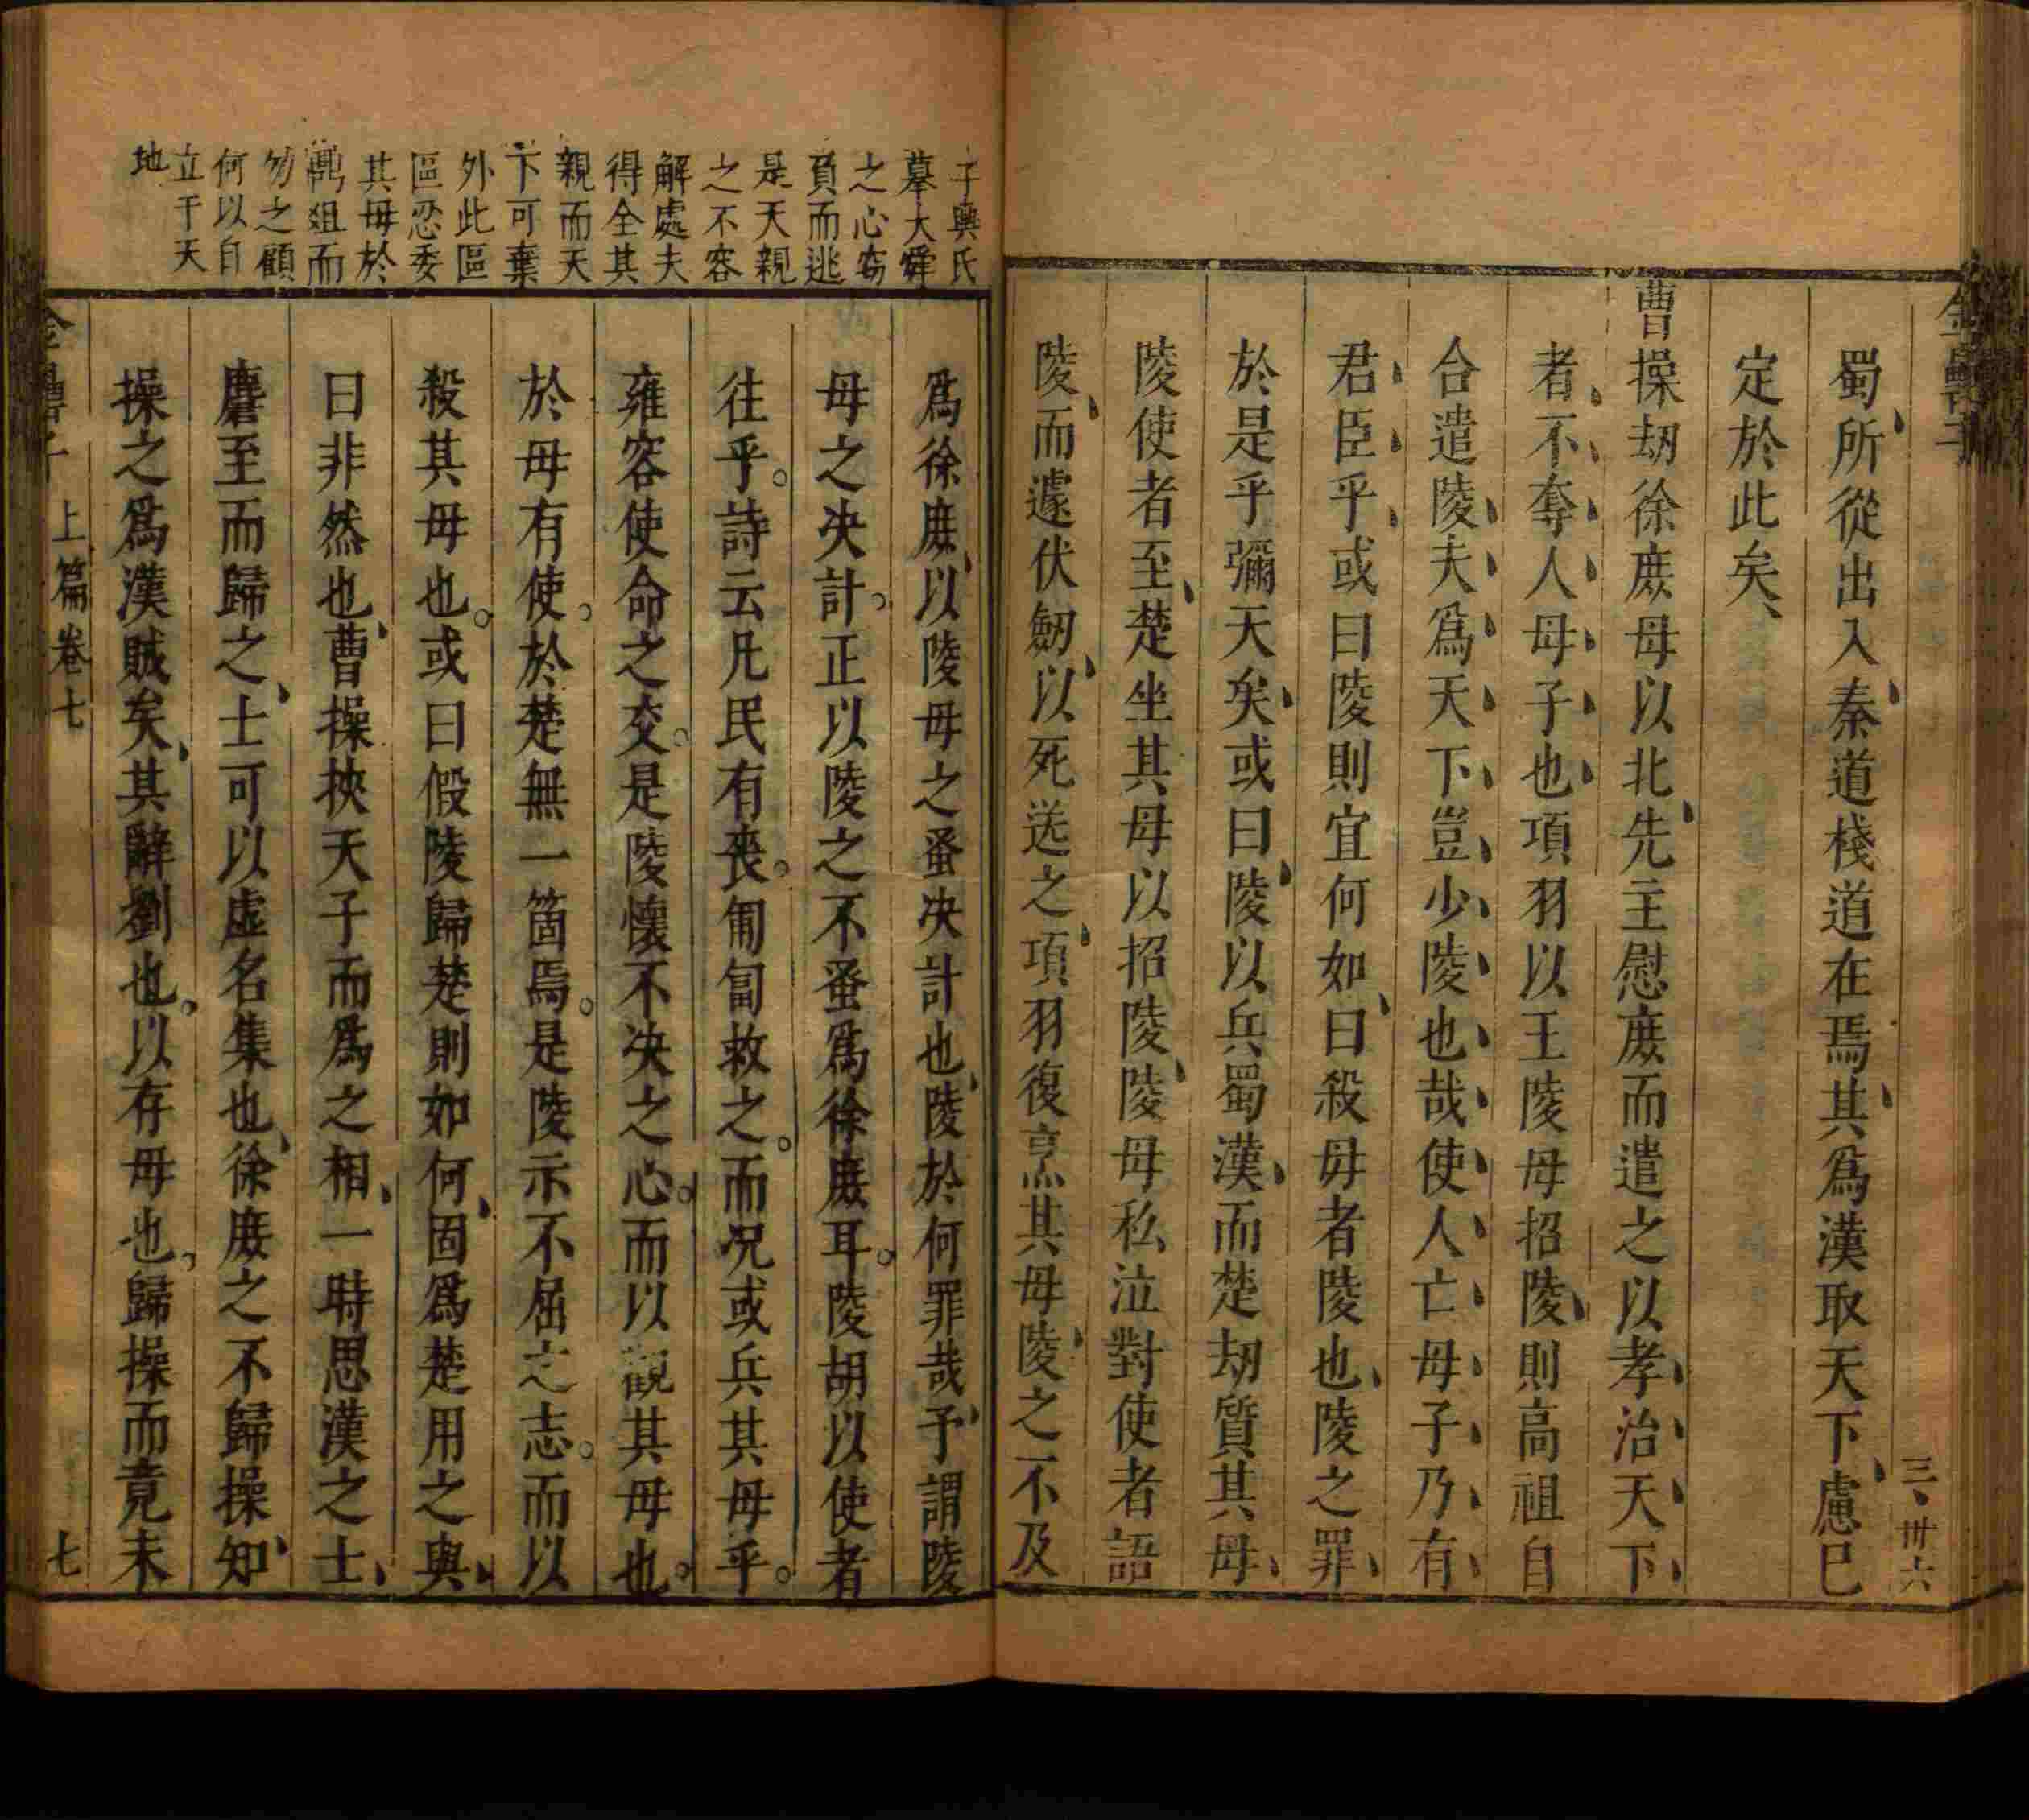 蜀所從出入秦道棧道在焉其爲漢取天下慮巳
定於此矣
曹操刼徐庶母以北先主慰庶而遣之以孝治天下
者不奪人母子也項羽以王陵母招陵則高祖自
合遣陵夫爲天下豈少陵也哉使人亡母子乃有
君臣乎或曰陵則宜何如曰殺母者陵也陵之罪
於是乎彌天矣或曰陵以兵蜀漢而楚刼質其母
陵使者至楚坐其母以招陵陵母私泣對使者語
陵而遽伏劒以死送之項羽復烹其母陵之不及
三卅六
子輿氏
摹大舜
之心竊
負而逃
是天親
之不容
解處夫
得全其
親而天
下可棄
外此區
區忍委
其母於
鼎俎而
勿之顧
何以自
立于天
地
爲徐庶以陵母之蚤决計也陵於何罪哉予謂陵
母之决計正以陵之不蚤爲徐庶耳陵胡以使者
往乎詩云凡民有喪匍匐救之而况或兵其母乎
雍容使命之交是陵懷不决之心而以觀其母也
於母有使於楚無一箇焉是陵示不屈之志而以
殺其母也或曰假陵歸楚則如何固爲楚用之與
曰非然也曹操挾天子而爲之相一時思漢之士
麏至而歸之士可以虛名集也徐庶之不歸操知
操之爲漢賊矣其辭劉也以存母也歸操而竟未
上篇卷七
七